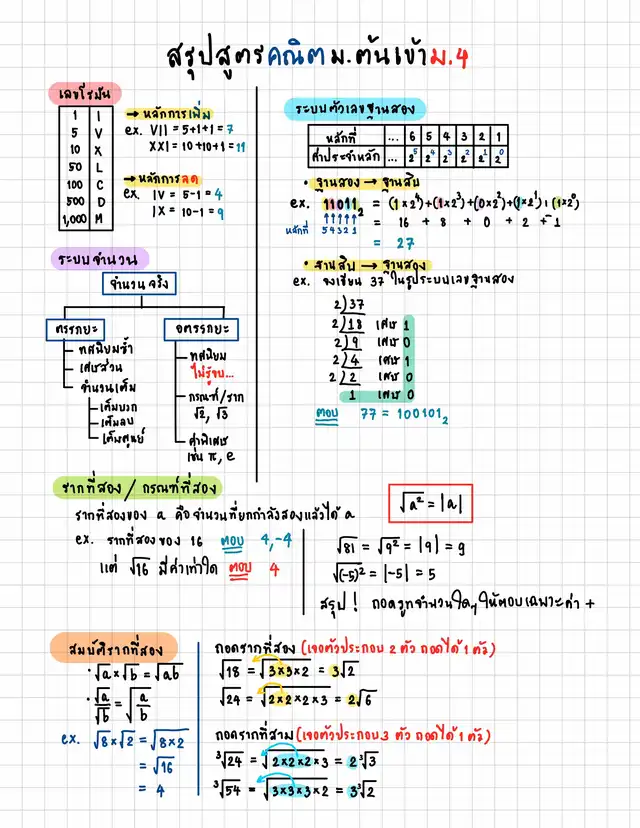 สรุปสูตรคณิตม.ต้นเข้าม.4
เลขโรมัน
1 I
5 V
10 X
50 L
100 C
500 D
1,000 M
→ หลักการเพิ่ม
ex. VII = 5+1+1 = 7
XXI = 10+10+1 = 11
→ หลักการลด
ex. IV = 5-1 = 4
IX = 10-1 = 9
ระบบจำนวน
จำนวนจริง
ตรรกยะ
ทศนิยมซ้ำ
เศษส่วน
จำนวนเต็ม
เต็มบวก
เต็มลบ
เต็มศูนย์
อตรรกยะ
ทศนิยม
ไม่รู้จบ...
กรณฑ์/ราก
√2, √3
ค่าพิเศษ
เช่น π, e
ระบบตัวเลขฐานสอง
หลักที่ ... 6 5 4 3 2 1
ค่าประจำหลัก ... 2⁵ 2⁴ 2³ 2² 2¹ 2⁰
• ฐานสอง → ฐานสิบ
ex. 11011₂ = (1×2⁴)+(1×2³)+(0×2²)+(1×2¹)+(1×2⁰)
↑↑↑↑↑ = 16 + 8 + 0 + 2 + 1
หลักที่ 5 4 3 2 1
= 27
• ฐานสิบ → ฐานสอง
ex. จงเขียน 37 ในรูประบบเลขฐานสอง
2)37
2)18 เศษ 1
2)9 เศษ 0
2)4 เศษ 1
2)2 เศษ 0
1 เศษ 0
ตอบ 77 = 100101₂
รากที่สอง / กรณฑ์ที่สอง
รากที่สองของ a คือ จำนวนที่ยกกำลังสองแล้วได้ a
ex. รากที่สองของ 16 ตอบ 4,-4
แต่ √16 มีค่าเท่าใด ตอบ 4
√a² = |a|
√81 = √9² = |9| = 9
√(-5)² = |-5| = 5
สรุป! ถอดรูทจำนวนใดๆ ให้ตอบเฉพาะค่า +
สมบัติรากที่สอง
• √a × √b = √ab
• √a/√b = √(a/b)
ex. √8 × √2 = √8×2
= √16
= 4
ถอดรากที่สอง (เจอตัวประกอบ 2 ตัว ถอดได้ 1 ตัว)
√18 = √3×3×2 = 3√2
√24 = √2×2×2×3 = 2√6
ถอดรากที่สาม (เจอตัวประกอบ 3 ตัว ถอดได้ 1 ตัว)
³√24 = √2×2×2×3 = 2³√3
³√54 = √3×3×3×2 = 3³√2